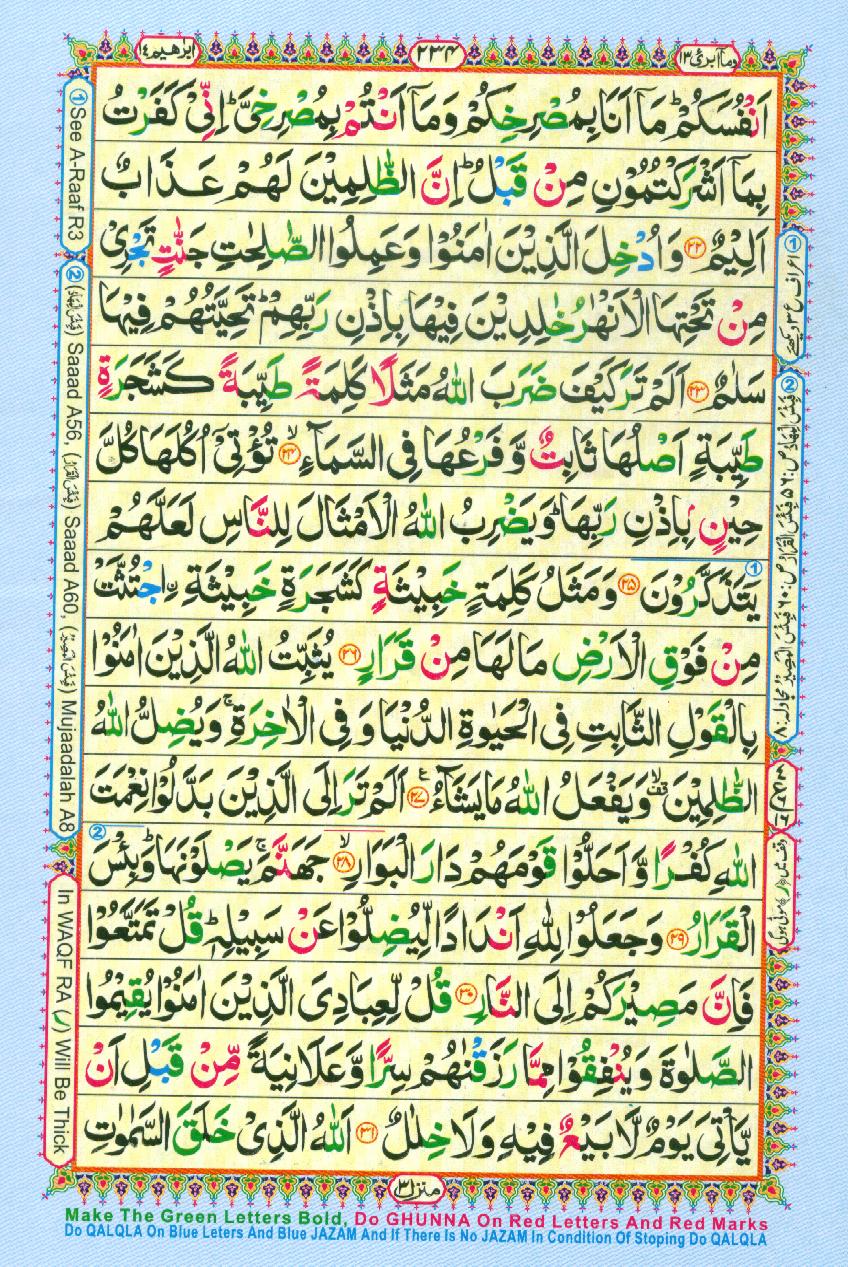 وما ابرئ ١٣
٢٣٤
ابرٰهيم ١٤
اَنْفُسَكُمْ ؕ مَاۤ اَنَا بِمُصْرِخِكُمْ وَمَاۤ اَنْتُمْ بِمُصْرِخِيَّ ؕ اِنِّيْ كَفَرْتُ
بِمَاۤ اَشْرَكْتُمُوْنِ مِنْ قَبْلُ ؕ اِنَّ الظّٰلِمِيْنَ لَهُمْ عَذَابٌ
اَلِيْمٌ ﴿۲۲﴾ وَاُدْخِلَ الَّذِيْنَ اٰمَنُوْا وَعَمِلُوا الصّٰلِحٰتِ جَنّٰتٍ تَجْرِيْ
مِنْ تَحْتِهَا الْاَنْهٰرُ خٰلِدِيْنَ فِيْهَا بِاِذْنِ رَبِّهِمْ ؕ تَحِيَّتُهُمْ فِيْهَا
سَلٰمٌ ﴿۲۳﴾ اَلَمْ تَرَ كَيْفَ ضَرَبَ اللّٰهُ مَثَلًا كَلِمَةً طَيِّبَةً كَشَجَرَةٍ
طَيِّبَةٍ اَصْلُهَا ثَابِتٌ وَّفَرْعُهَا فِي السَّمَآءِ ۙ﴿۲۴﴾ تُؤْتِيْۤ اُكُلَهَا كُلَّ
حِيْنٍۭ بِاِذْنِ رَبِّهَا ؕ وَيَضْرِبُ اللّٰهُ الْاَمْثَالَ لِلنَّاسِ لَعَلَّهُمْ
يَتَذَكَّرُوْنَ ﴿۲۵﴾ وَمَثَلُ كَلِمَةٍ خَبِيْثَةٍ كَشَجَرَةٍ خَبِيْثَةِ ۨاجْتُثَّتْ
مِنْ فَوْقِ الْاَرْضِ مَا لَهَا مِنْ قَرَارٍ ﴿۲۶﴾ يُثَبِّتُ اللّٰهُ الَّذِيْنَ اٰمَنُوْا
بِالْقَوْلِ الثَّابِتِ فِي الْحَيٰوةِ الدُّنْيَا وَفِي الْاٰخِرَةِ ۚ وَيُضِلُّ اللّٰهُ
الظّٰلِمِيْنَ ۙ وَيَفْعَلُ اللّٰهُ مَا يَشَآءُ ﴿۲۷﴾ اَلَمْ تَرَ اِلَى الَّذِيْنَ بَدَّلُوْا نِعْمَتَ
اللّٰهِ كُفْرًا وَّاَحَلُّوْا قَوْمَهُمْ دَارَ الْبَوَارِ ۙ﴿۲۸﴾ جَهَنَّمَ ۚ يَصْلَوْنَهَا ؕ وَبِئْسَ
الْقَرَارُ ﴿۲۹﴾ وَجَعَلُوْا لِلّٰهِ اَنْدَادًا لِّيُضِلُّوْا عَنْ سَبِيْلِهٖ ؕ قُلْ تَمَتَّعُوْا
فَاِنَّ مَصِيْرَكُمْ اِلَى النَّارِ ﴿۳۰﴾ قُلْ لِّعِبَادِيَ الَّذِيْنَ اٰمَنُوْا يُقِيْمُوا
الصَّلٰوةَ وَيُنْفِقُوْا مِمَّا رَزَقْنٰهُمْ سِرًّا وَّعَلَانِيَةً مِّنْ قَبْلِ اَنْ
يَّاْتِيَ يَوْمٌ لَّا بَيْعٌ فِيْهِ وَلَا خِلٰلٌ ﴿۳۱﴾ اَللّٰهُ الَّذِيْ خَلَقَ السَّمٰوٰتِ
منزل ٣
① See A-Raaf R3
② (فَبِئْسَ الْمِهَادُ) Saaad A56, (فَبِئْسَ الْقَرَارُ) Saaad A60, (فَبِئْسَ الْمَصِيْرُ) Mujaadalah A8
In WAQF RA (ر) Will Be Thick
Make The Green Letters Bold, Do GHUNNA On Red Letters And Red Marks
Do QALQLA On Blue Leters And Blue JAZAM And If There Is No JAZAM In Condition Of Stoping Do QALQLA